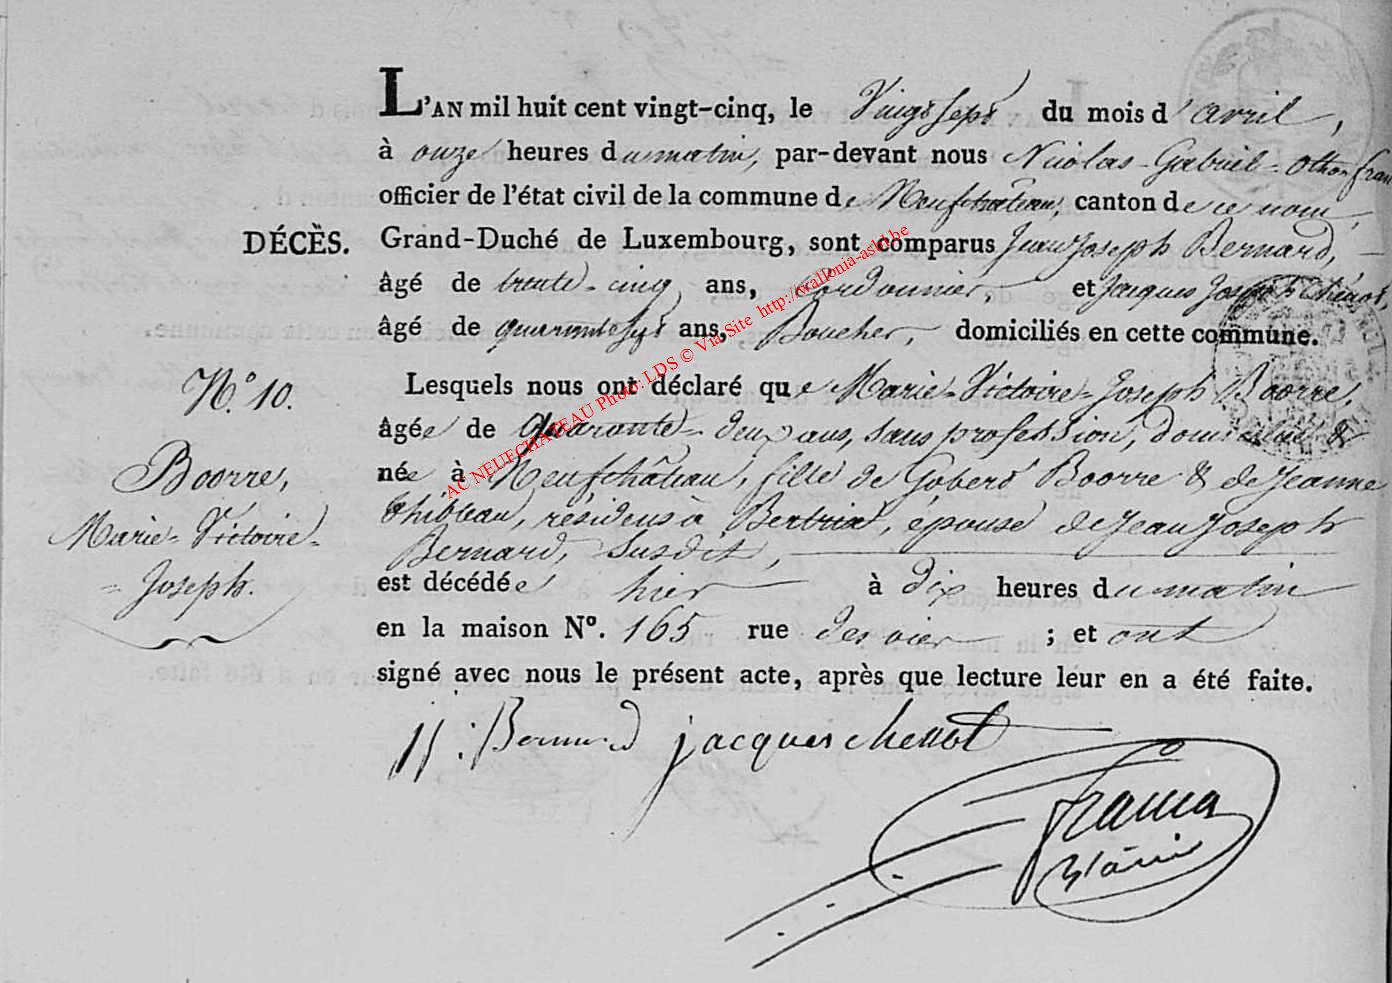 L'AN mil huit cent vingt-cinq, le Vingt sept du mois d'avril,
à onze heures du matin, par-devant nous Nicolas-Gabriel-Othon
officier de l'état civil de la commune de Neufchâteau, canton de ce nom,
DÉCÈS.
Grand-Duché de Luxembourg, sont comparus Jean Joseph Bernard,
âgé de trente-cinq ans, Cordonnier, et Jacques Joseph
âgé de quarante sept ans, Boucher, domiciliés en cette commune.
N.° 10.
Lesquels nous ont déclaré que Marie-Victoire-Joseph Boorre,
âgée de Quarante-deux ans, sans profession, domiciliée &
née à Neufchâteau, fille de Gobert Boorre & de Jeanne
Thibleau, résidens à Bertrix, épouse de Jean Joseph
Bernard, susdit,
Boorre,
Marie-Victoire-
-Joseph.
est décédée hier à dix heures du matin
en la maison N°. 165 rue ; et ont
signé avec nous le présent acte, après que lecture leur en a été faite.
JJ: Bernard jacques chenot
AC NEUFCHATEAU Photo: LDS © Via Site http://wallonia-asbl.be